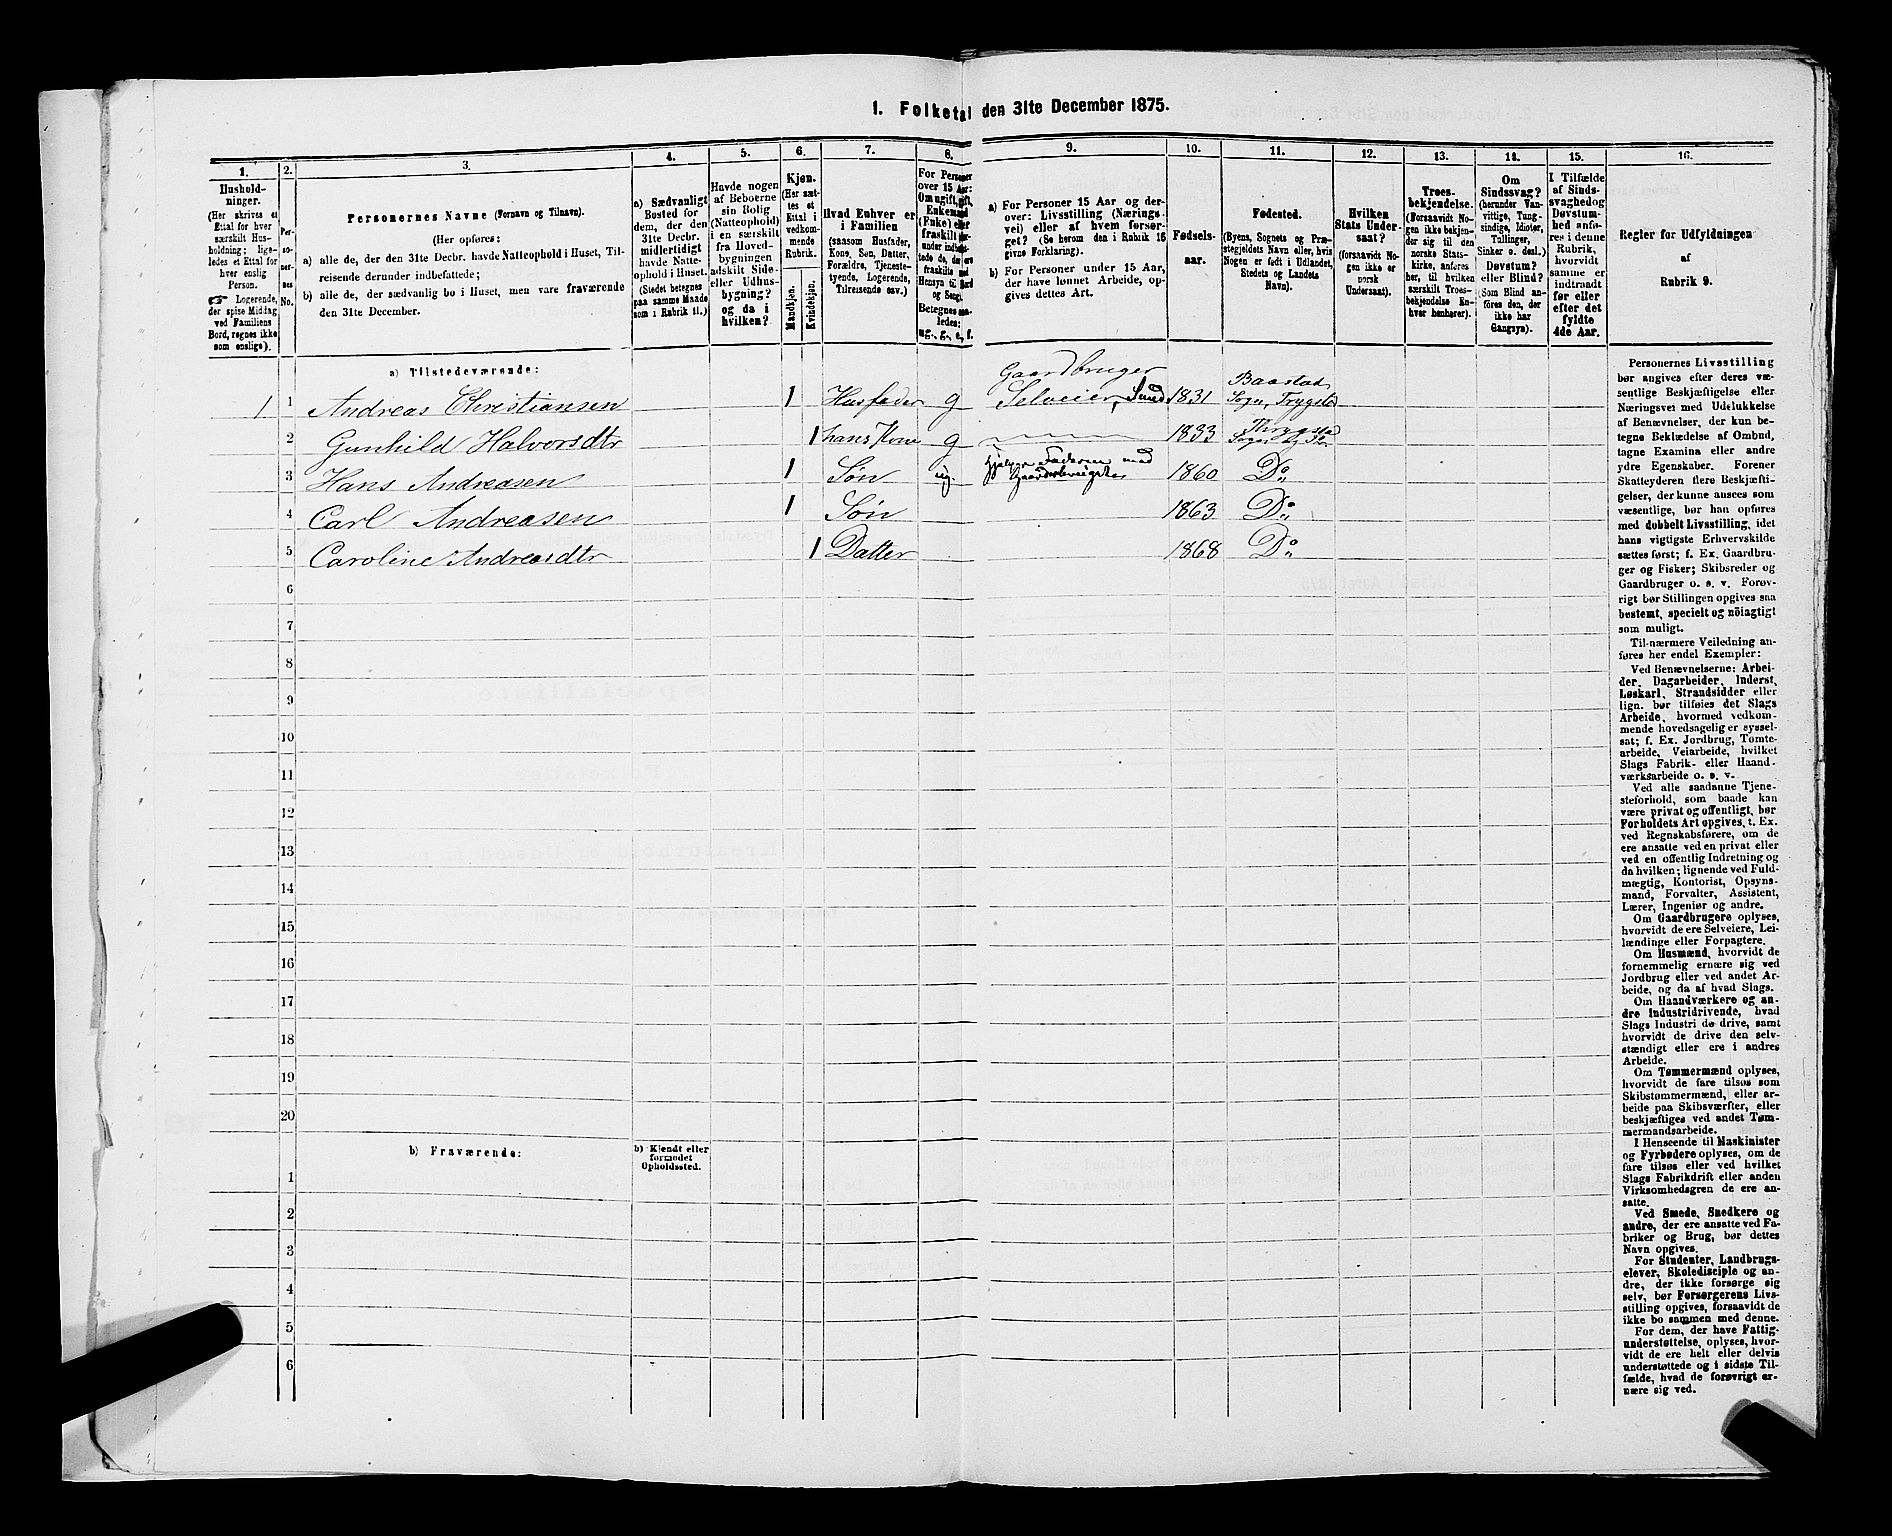 1. Folketal den 31te December 1875.
1.
Hushold-
ninger.
(Her skrives et
Ettal for hver
særskilt Hus-
holdning; lige-
ledes et Ettal for
hver enslig
Person.
Logerende,
der spise Middag
ved Familiens
Bord, regnes ikke
som enslige).
2.
Per-
so-
ner-
nes
No.
3.
Personernes Navne (Fornavn og Tilnavn).
(Her opføres:
a) alle de, der den 31te Decbr. havde Natteophold i Huset, Til-
reisende derunder indbefattede;
b) alle de, der sædvanlig bo i Huset, men vare fraværende
den 31te December.
4.
a) Sædvanligt
Bosted for
dem, der den
31te Decbr.
midlertidigt
havde Natte-
ophold i Huset.
(Stedet betegnes
paa samme Maade
som i Rubrik 11.)
5.
Havde nogen
af Beboerne
sin Bolig
(Natteophold)
i en særskilt
fra Hoved-
bygningen
adskilt Side-
eller Udhus-
bygning?
og da i
hvilken?
6.
Kjøn.
(Her sæt-
tes et
Ettal i
vedkom-
mende
Rubrik.
Mandkjøn.
Kvindekjøn.
7.
Hvad Enhver er
i Familien
(saasom Husfader,
Kone, Søn, Datter,
Forældre, Tjeneste-
tyende, Logerende,
Tilreisende osv.)
8.
For Personer
over 15 Aar:
Om ugift, gift,
Enkemand
(Enke) eller
fraskilt
Betegnes saa-
ledes:
ug., g., e., f.
9.
a) For Personer 15 Aar og der-
over: Livsstilling (Nærings-
vei) eller af hvem forsør-
get? (Se herom den i Rubrik 16
givne Forklaring).
b) For Personer under 15 Aar,
der have lønnet Arbeide, op-
gives dettes Art.
10.
Fødsels-
aar.
11.
Fødested.
(Byens, Sognets og Præ-
stegjeldets Navn eller, hvis
Nogen er født i Udlandet,
Stedets og Landets
Navn).
12.
Hvilken
Stats Under-
saat?
(forsaavidt No-
gen ikke er
norsk
Undersaat).
13.
Troes-
bekjendelse.
(Forsaavidt No-
gen ikke bekjen-
der sig til den
norske Stats-
kirke, anføres
her, til hvilken
særskilt Troes-
bekjendelse En-
hver henhører).
14.
Om
Sindssvag?
(herunder Van-
vittige, Tung-
sindige, Idioter,
Tullinger,
Sinker o. desl.)
Døvstum?
eller Blind?
(Som Blind an-
føres den, der
ikke har
Gangsyn).
15.
I Tilfælde
af Sinds-
svaghed og
Døvstum-
hed anfø-
res i denne
Rubrik,
hvorvidt
samme er
indtraadt
før eller
efter det
fyldte
4de Aar.
16.
Regler for Udfyldningen
af
Rubrik 9.
a) Tilstedeværende:
1 1 Andreas Christiansen 1 Husfader g Gaardbruger Selveier, Smed 1831 Baastad Sogn, Trygsta
2 Gunhild Halvorsdtr 1 hans Kone g 1833 Thrygstad Sogn og
3 Hans Andreasen 1 Søn ug. Hjelper Faderen med 1860 Do
4 Carl Andreasen 1 Søn 1863 Do
5 Caroline Andreasdtr 1 Datter 1868 Do
6
7
8
9
10
11
12
13
14
15
16
17
18
19
20
b) Fraværende:
b) Kjendt eller
formodet
Opholdssted.
1
2
3
4
5
6
Personernes Livsstilling
bør angives efter deres væ-
sentlige Beskjæftigelse eller
Næringsvei med Udelukkelse
af Benævnelser, der kun be-
tegne Beklædelse af Ombud,
tagne Examina eller andre
ydre Egenskaber. Forener
Skatteyderen flere Beskjæfti-
gelser, der kunne ansees som
væsentlige, bør han opføres
med dobbelt Livsstilling, idet
hans vigtigste Erhvervskilde
sættes først; f. Ex. Gaardbru-
ger og Fisker; Skibsreder og
Gaardbruger o. s. v. Forøv-
rigt bør Stillingen opgives saa
bestemt, specielt og nöiagtigt
som muligt.
Til nærmere Veiledning an-
føres her endel Exempler:
Ved Benævnelserne: Arbei-
der, Dagarbeider, Inderst,
Løskarl, Strandsidder eller
lign. bør tilføies det Slags
Arbeide, hvormed vedkom-
mende hovedsagelig er syssel-
sat; f. Ex. Jordbrug, Tomte-
arbeide, Veiarbeide, hvilket
Slags Fabrik- eller Haand-
værksarbeide o. s. v.
Ved alle saadanne Tjene-
steforhold, som baade kan
være privat og offentligt, bør
Forholdets Art opgives, t. Ex.
ved Regnskabsførere, om de
ere ansatte ved en privat eller
ved en offentlig Indretning og
da hvilken; lignende ved Fuld-
mægtig, Kontorist, Opsyns-
mand, Forvalter, Assistent,
Lærer, Ingeniør og andre.
Om Gaardbrugere oplyses,
hvorvidt de ere Selveiere, Lei-
lændinge eller Forpagtere.
Om Husmænd, hvorvidt de
fornemmelig ernære sig ved
Jordbrug eller ved andet Ar-
beide, og da af hvad Slags.
Om Haandværkere og an-
dre Industridrivende, hvad
Slags Industri de drive, samt
hvorvidt de drive den selv-
stændigt eller ere i andres
Arbeide.
Om Tømmermænd oplyses,
hvorvidt de fare tilsøs som
Skibstømmermænd, eller ar-
beide paa Skibsværfter, eller
beskjæftiges ved andet Tøm-
mermandsarbeide.
I Henseende til Maskinister
og Fyrbødere oplyses, om de
fare tilsøs eller ved hvilket
Slags Fabrikdrift eller anden
Virksomhedsgren de ere an-
satte.
Ved Smede, Snedkere og
andre, der ere ansatte ved Fa-
briker og Brug, bør dettes
Navn opgives.
For Studenter, Landbrugs-
elever, Skoledisciple og an-
dre, der ikke forsørge sig
selv, bør Forsørgerens Livs-
stilling opgives, forsaavidt de
ikke bo sammen med denne.
For dem, der have Fattig-
understøttelse, oplyses, hvor-
vidt de ere helt eller delvis
understøttede og i sidste Til-
fælde, hvad de forøvrigt er-
nære sig ved.